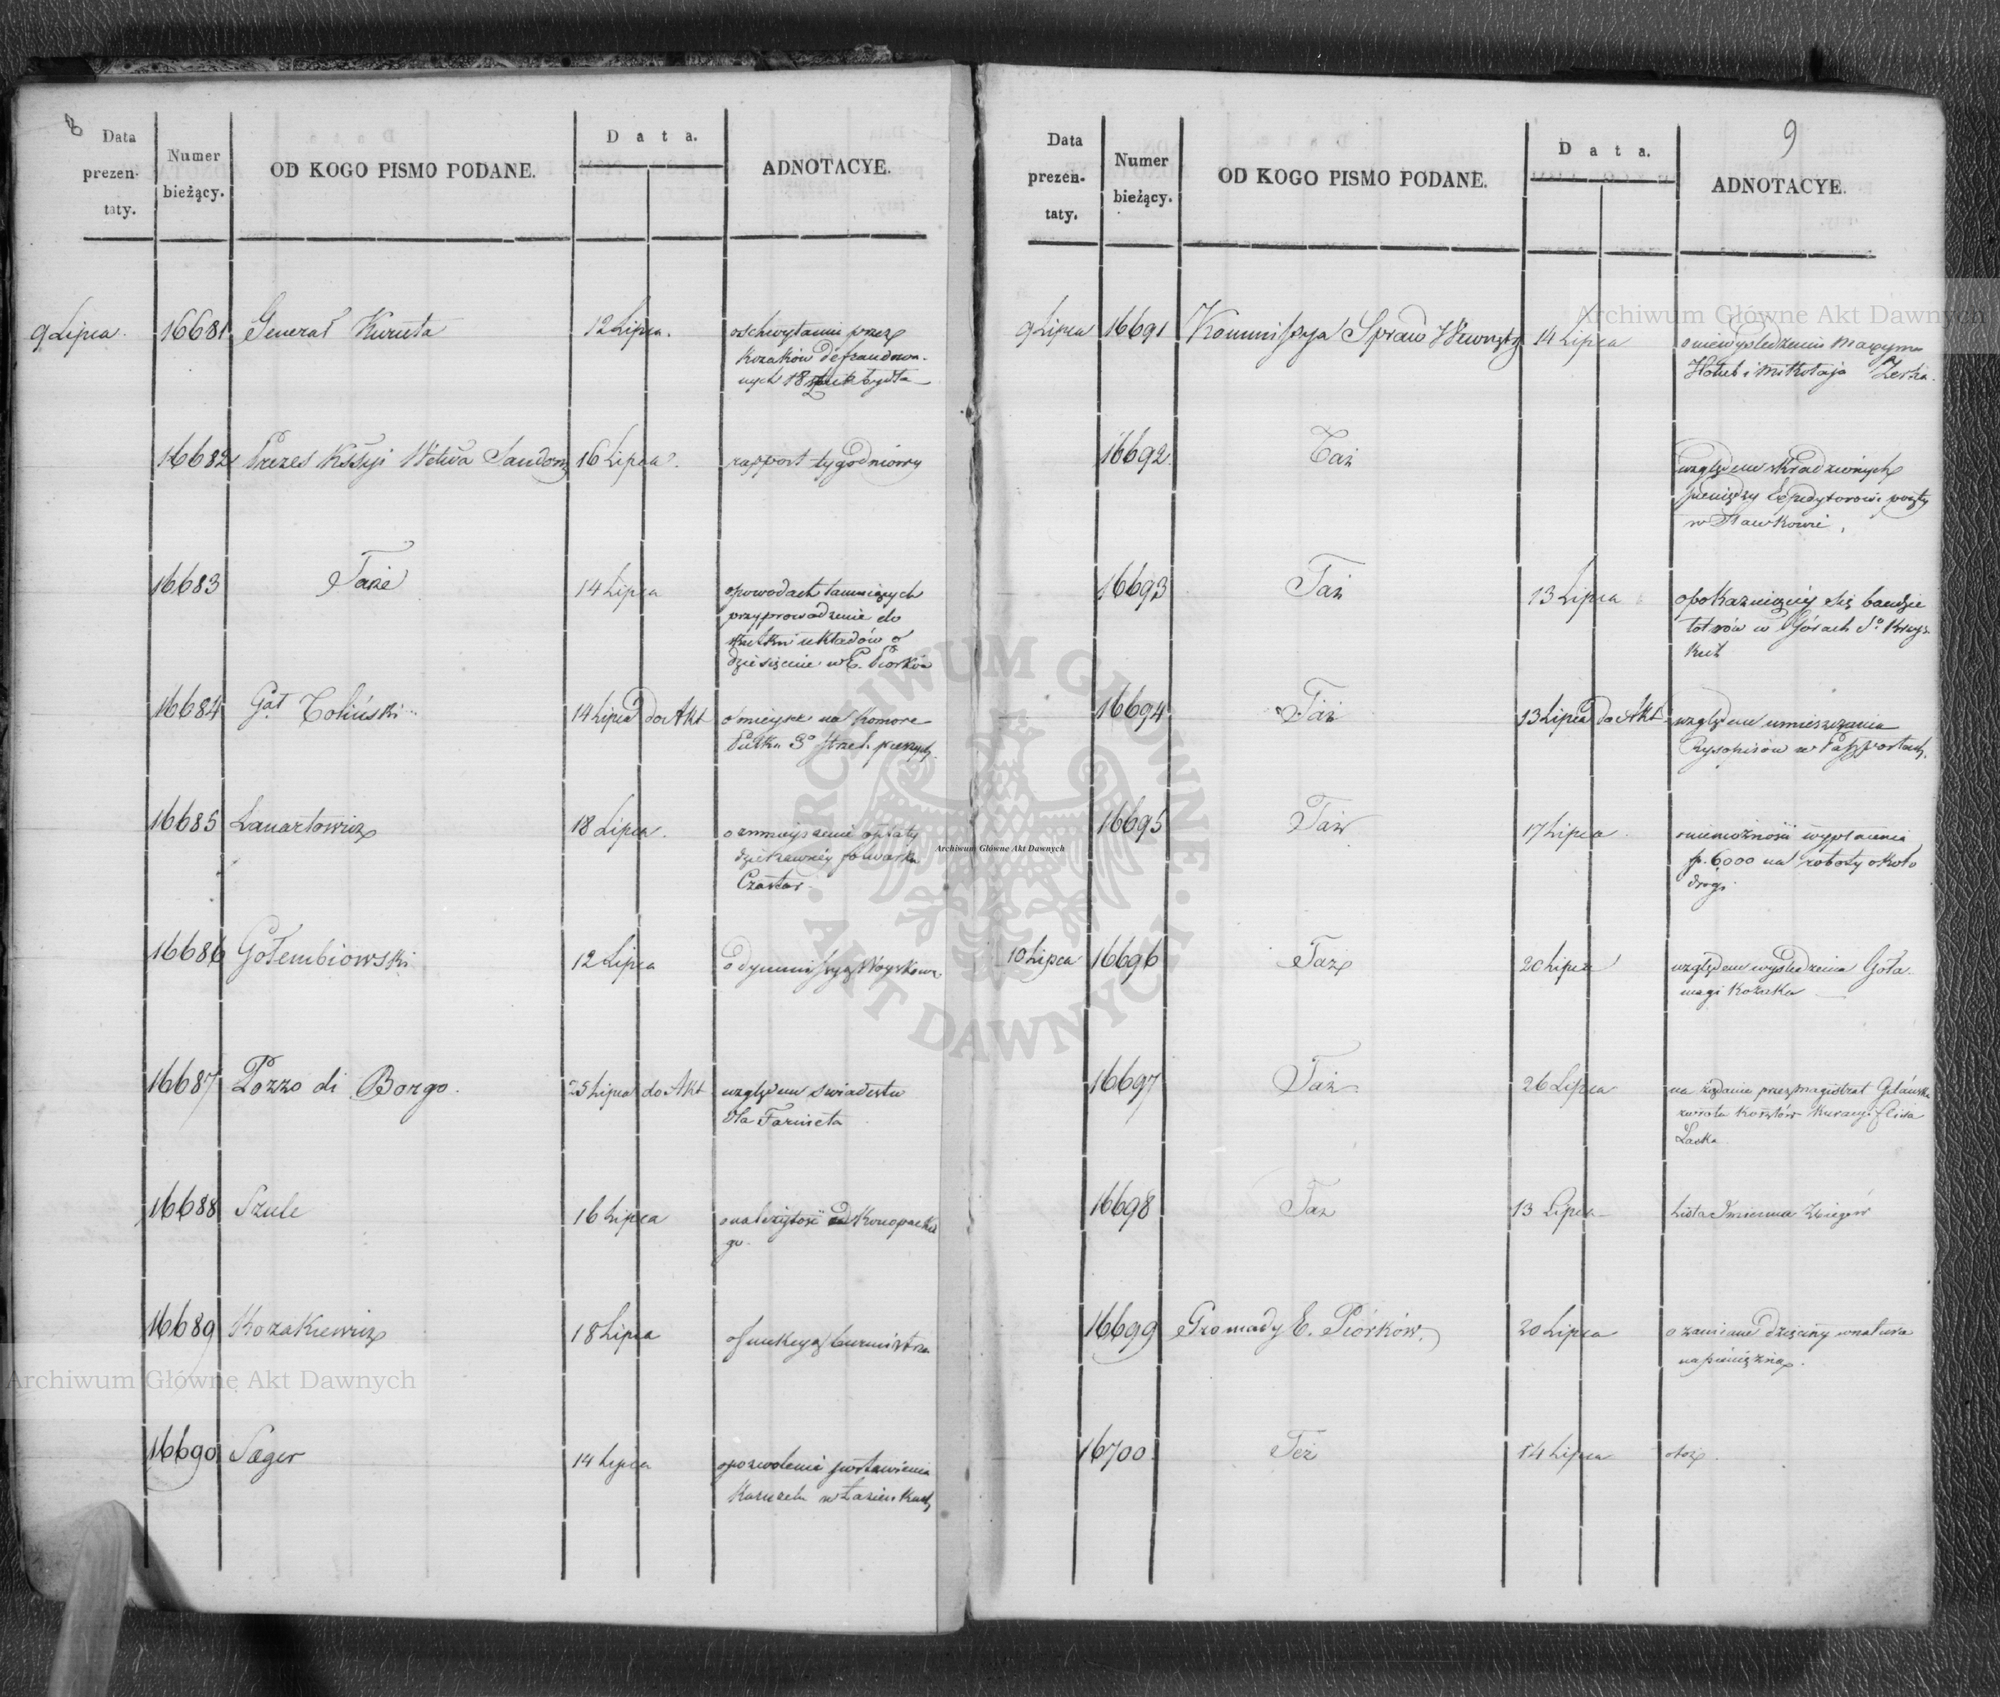 8
Data
prezen-
taty.
Numer
bieżący.
OD KOGO PISMO PODANE.
Data.
ADNOTACYE.
9 Lipca. 16681 Generał Kuruta 12 Lipca. o schwytaniu przez
Kozaków defraudowa-
nych 18 sztuk bydła
16682 Prezes Kssyi Wdtwa Sandom 16 Lipca. rapport tygodniowy
16683 Tenże 14 Lipca o powodach tamujących
przyprowadzenie do
skutku układów o
dziesięcinę w E. Piórków
16684 Gał Toliński 14 Lipca do Akt o mieysce na Komorę
Pułku 3º strzel. pieszych
16685 Lenartowicz 18 Lipca. o zmnieyszenie opłaty
dzierżawnéy folwarku
Czastar.
16686 Gołembiowski 12 Lipca o dymmissyą Woyskową
16687 Pozzo di Borgo. 25 Lipca do Akt względem świadectw
dla Farnieta
16688 Szulc 16 Lipca o należytość od Konopackie
go.
16689 Kozakiewicz 18 Lipca o funkcyą burmistrza
16690 Seger 14 Lipca o pozwolenie postawienia
Karuzelu w Łazienkach
9
Data
prezen-
taty.
Numer
bieżący.
OD KOGO PISMO PODANE.
Data.
ADNOTACYE.
9 Lipca 16691 Kommissya Spraw Wewnętz 14 Lipca o niewyśledzeniu Maxyma
Hołub i Mikołaja
16692 Taż względem skradzionych
pieniędzy Expedytorowi poczty
w Sławkowie
16693 Taż 13 Lipca o pokazuiącéy się bandzie
łotrów w Górach So Krzyz
kich
16694 Taż 13 Lipca do Akt względem umieszczania
Rysopisów w Passportach
16695 Taż 17 Lipca o niemożności wypłacenia
f. 6000 na roboty około
drogi
10 Lipca 16696 Taż 20 Lipca względem wyśledzenia Goła-
magi Kozaka
16697 Taż 26 Lipca na żądanie przez Magistrat Gdańska
zwrotu kosztów Kuracyi flisa
Laska
16698 Taż 13 Lipca Lista Imienna Zbiegów
16699 Gromady E. Piórków. 20 Lipca o zamianę dziesięciny w naturze
na pieniężną.
16700 Też 14 Lipca o toż.
Archiwum Główne Akt Dawnych
Archiwum Główne Akt Dawnych
Archiwum Główne Akt Dawnych
ARCHIWUM GŁÓWNE · AKT DAWNYCH ·